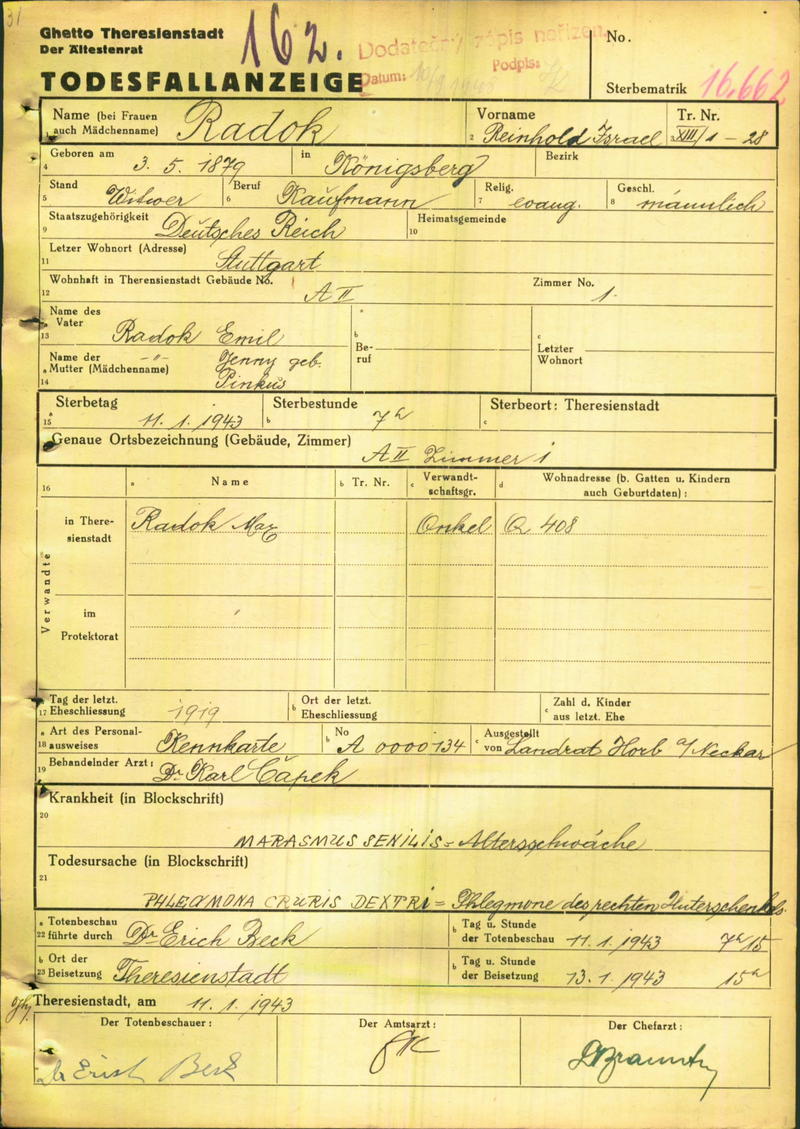 31
Ghetto Theresienstadt
Der Ältestenrat
162.
Dodatečný zápis nařízen.
Datum: 10/9 1945 Podpis:
No.
TODESFALLANZEIGE
Sterbematrik 16.662
Name (bei Frauen auch Mädchenname) Radok
Vorname
2 Reinhold Israel
Tr. Nr.
XIII/1 – 28
4 Geboren am 3. 5. 1879 in Königsberg Bezirk
5 Stand Witwer 6 Beruf Kaufmann 7 Relig. evang. 8 Geschl. männlich
9 Staatszugehörigkeit Deutsches Reich 10 Heimatsgemeinde
11 Letzer Wohnort (Adresse) Stuttgart
12 Wohnhaft in Theresienstadt Gebäude No. A II Zimmer No. 1.
13 Name des Vater Radok Emil
a
b Beruf
c Letzter Wohnort
14 Name der Mutter (Mädchenname) –"– Jenny geb. Pinkus
15 a Sterbetag 11. 1. 1943 b Sterbestunde 7h c Sterbeort: Theresienstadt
Genaue Ortsbezeichnung (Gebäude, Zimmer) A II Zimmer 1
16 a Name b Tr. Nr. c Verwandtschaftsgr. d Wohnadresse (b. Gatten u. Kindern auch Geburtdaten) :
Verwandte
in Theresienstadt Radok Max Onkel Q 408
im Protektorat
17 a Tag der letzt. Eheschliessung 1919 b Ort der letzt. Eheschliessung c Zahl d. Kinder aus letzt. Ehe
18 a Art des Personalausweises Kennkarte b No A 0000134 c Ausgestellt von Landrat Horb a/Neckar
19 Behandelnder Arzt: Dr. Karl Čapek
Krankheit (in Blockschrift)
20 MARASMUS SENILIS = Altersschwäche
Todesursache (in Blockschrift)
21 PHLEGMONA CRURIS DEXTRI = Phlegmone des rechten Unterschenkels.
22 a Totenbeschau führte durch Dr. Erich Beck b Tag u. Stunde der Totenbeschau 11. 1. 1943 7h 15
23 b Ort der Beisetzung Theresienstadt b Tag u. Stunde der Beisetzung 13. 1. 1943 15h
Theresienstadt, am 11. 1. 1943
Der Totenbeschauer: Der Amtsarzt: Der Chefarzt:
Dr Erich Beck